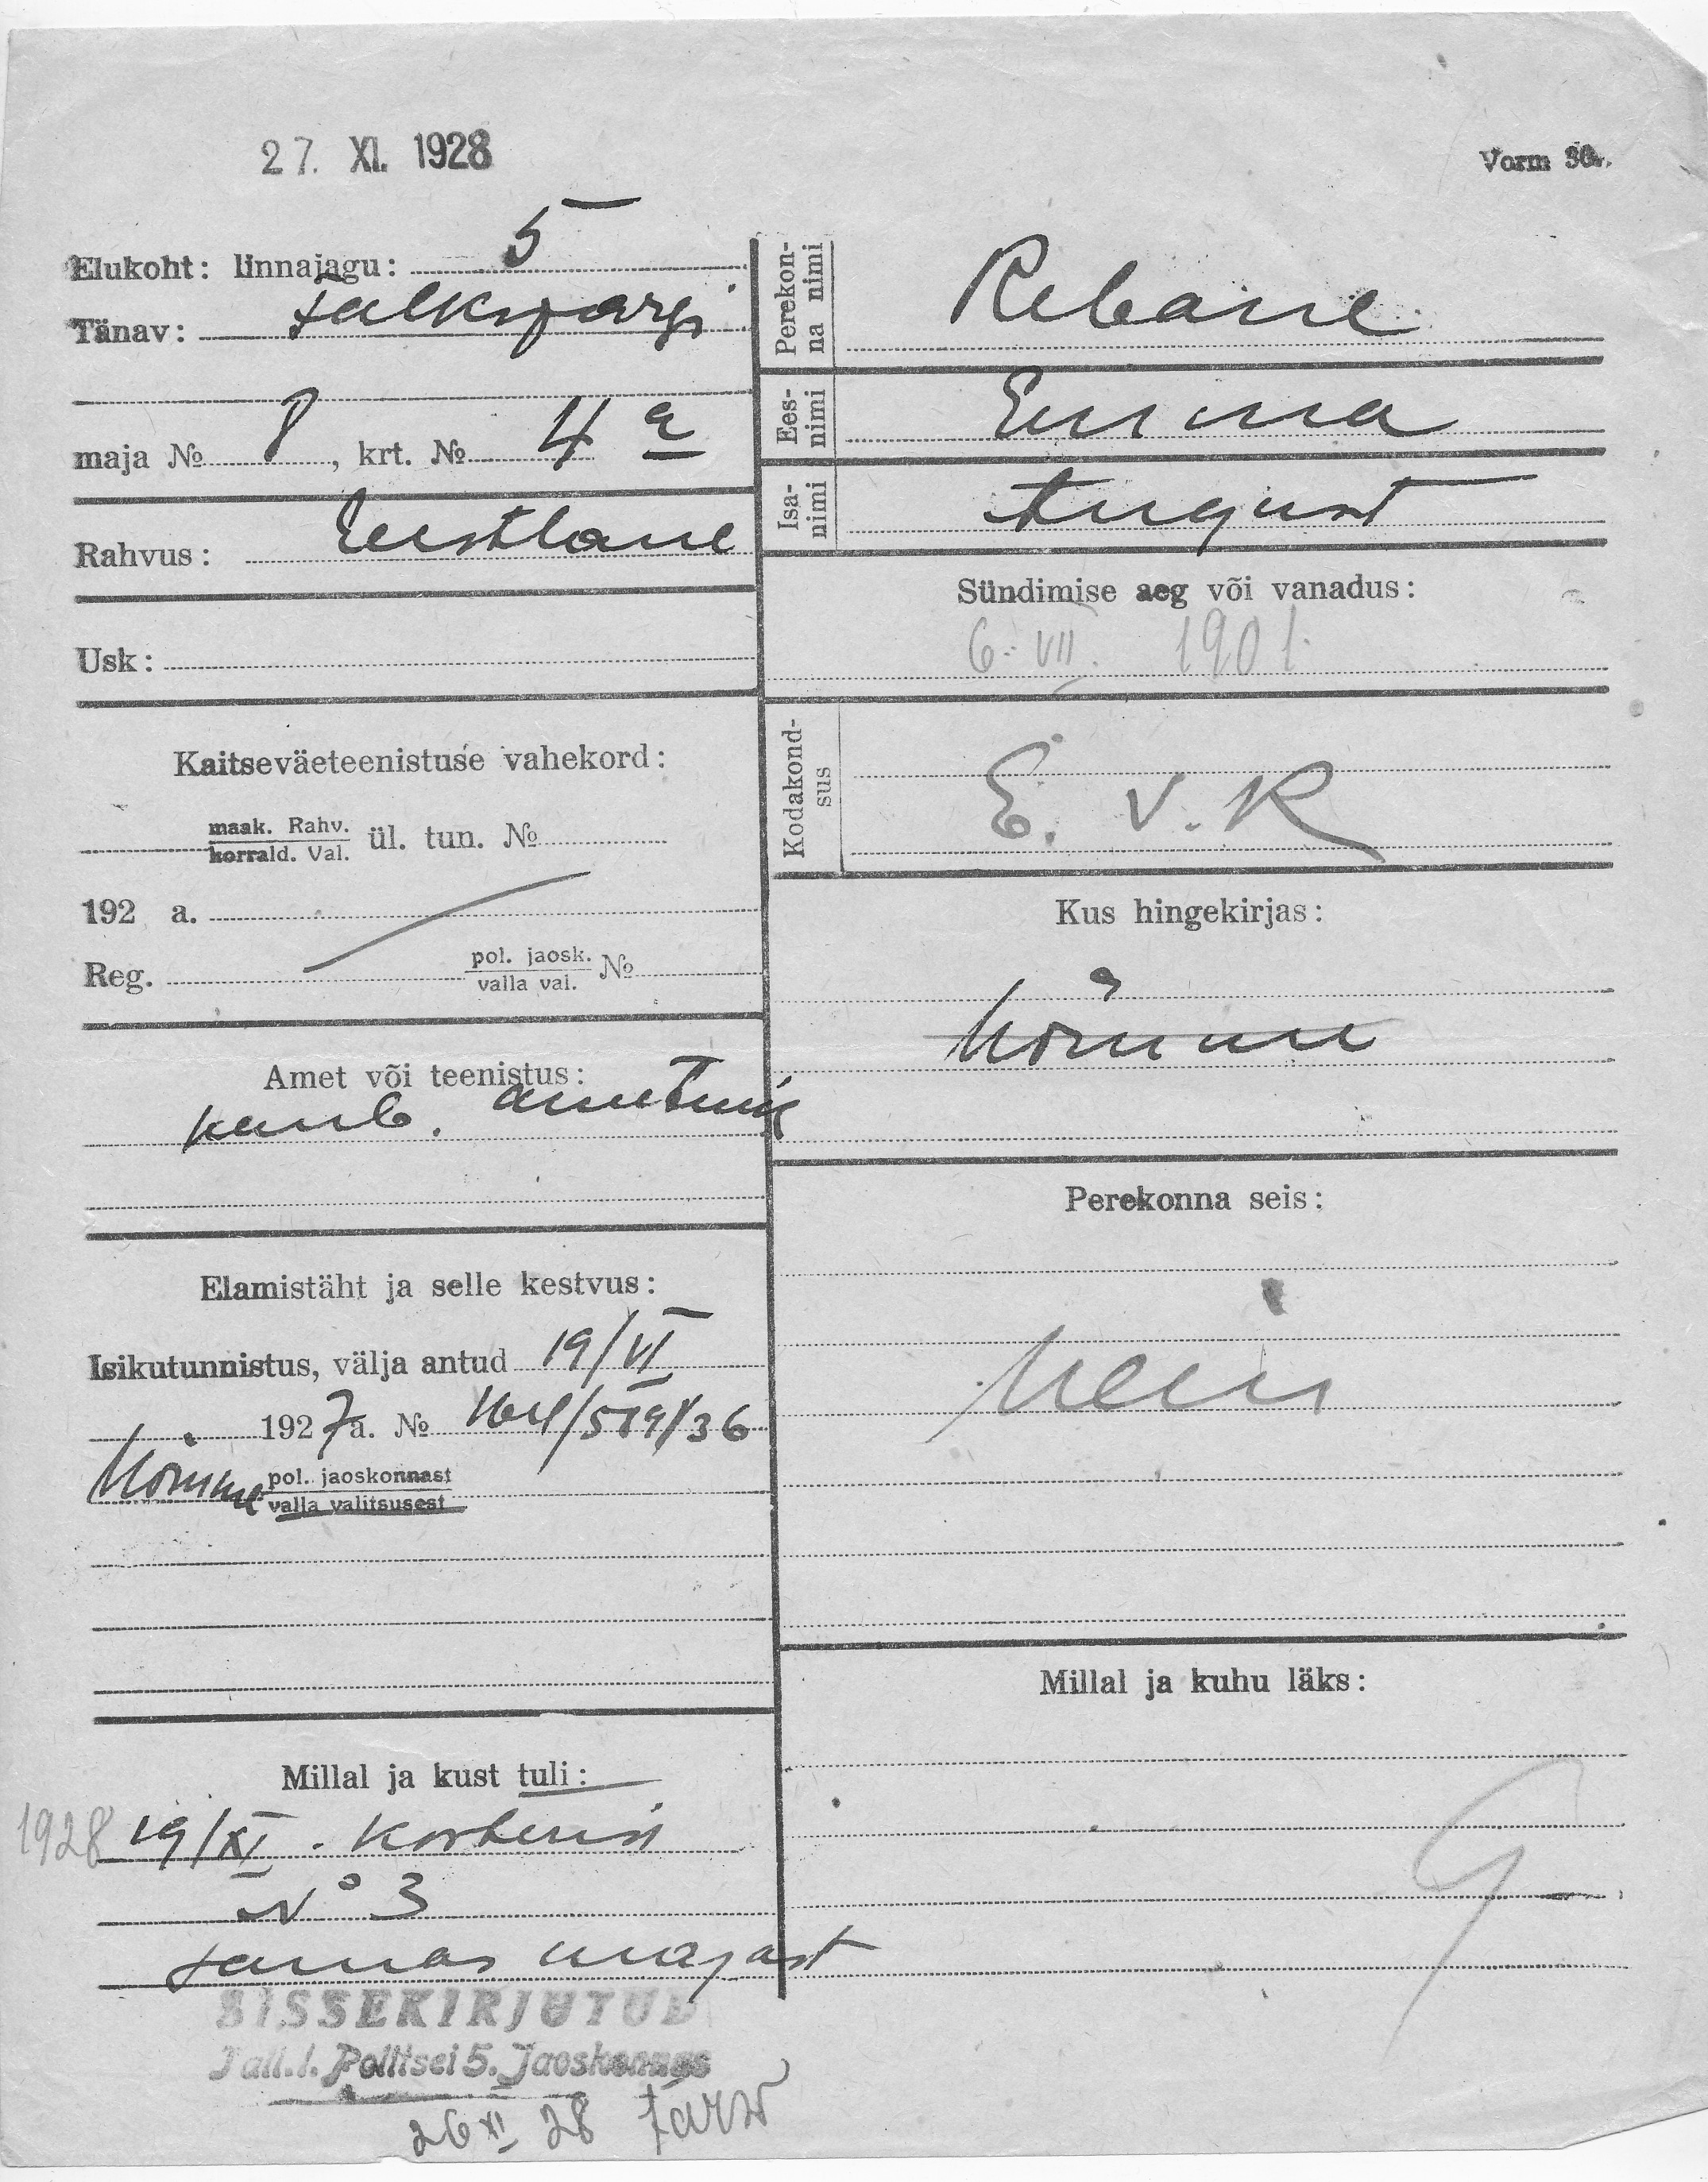 27. XI. 1928
Vorm 30.
Elukoht: linnajagu: 5
Tänav: Falkspargi
maja № 8, krt. № 4a
Rahvus: Eestlane
Usk:
Kaitseväeteenistuse vahekord:
maak. Rahv.
korrald. Val. ül. tun. №
192 a.
Reg. pol. jaosk. №
valla val.
Amet või teenistus:
kaub. ametnik
Elamistäht ja selle kestvus:
Isikutunnistus, välja antud 19/VI
1927 a. №
Nõmme pol. jaoskonnast
valla valitsusest
Millal ja kust tuli:
1928 19/XI. korterist
№ 3
samas majast
SISSEKIRJUTUD
Tall. l. Politsei 5. Jaoskonnas
26 XI 28
Perekonna nimi Rebane
Eesnimi Emma
Isanimi August
Sündimise aeg või vanadus:
6. VII. 1901.
Kodakondsus
E. V. K
Kus hingekirjas:
Nõmme
Perekonna seis:
Neiu
Millal ja kuhu läks: